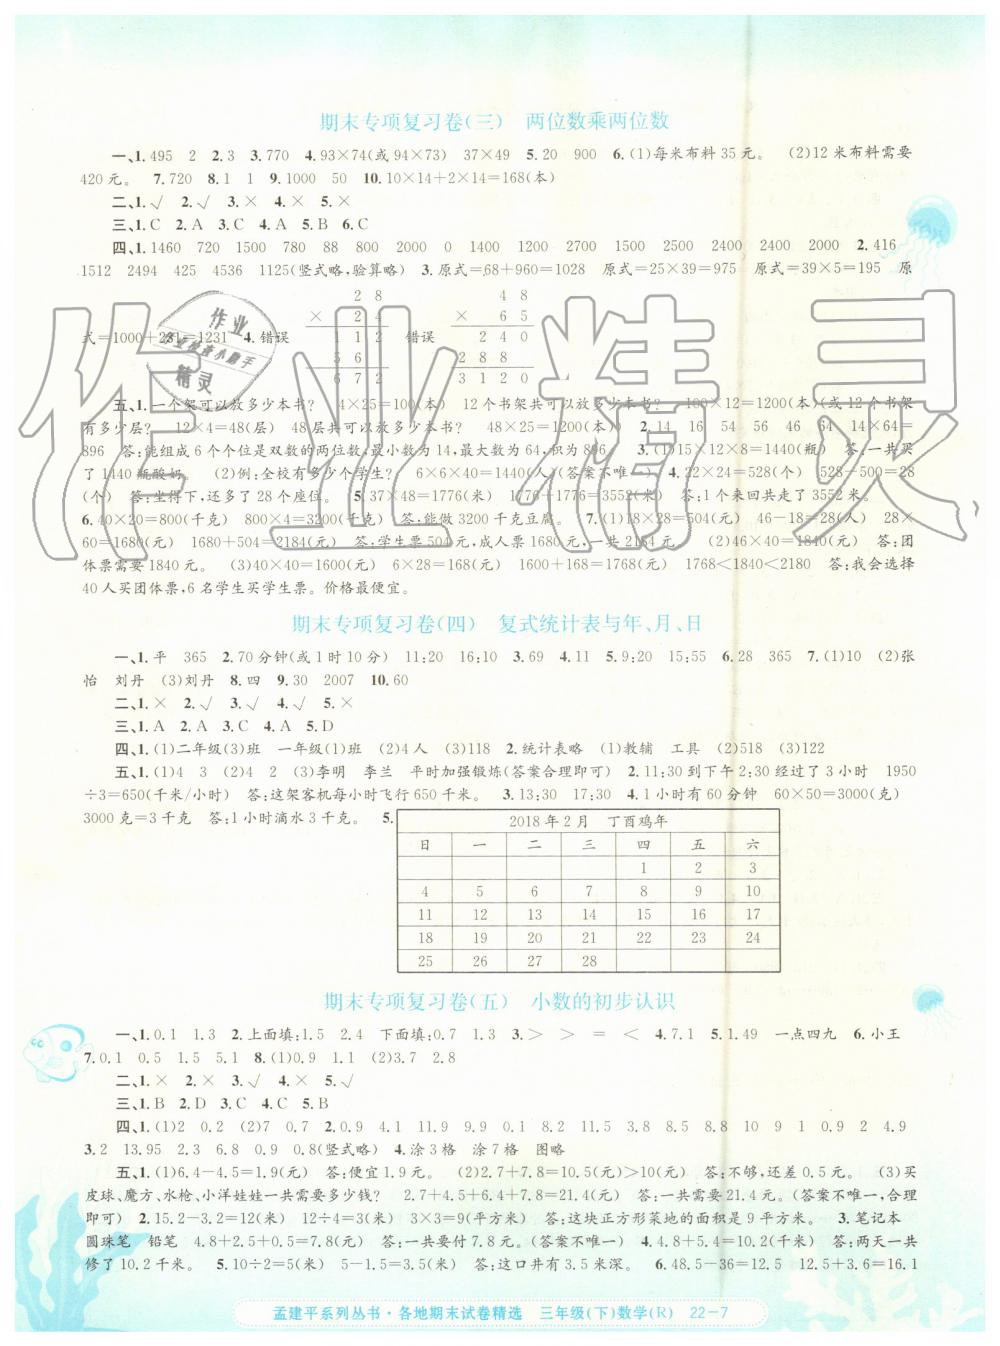 期末专项复习卷(三) 两位数乘两位数
一、1.495 2 2.3 3.770 4.93×74(或94×73) 37×49 5.20 900 6.(1)每米布料35元。 (2)12米布料需要
420元。 7.720 8.1 1 9.1000 50 10.10×14+2×14=168(本)
二、1.√ 2.√ 3.× 4.× 5.×
三、1.C 2.A 3.C 4.A 5.B 6.C
四、1.1460 720 1500 780 88 800 2000 0 1400 1200 2700 2500 2400 2400 2000 2.416
1512 2494 425 4536 1125(竖式略,验算略) 3.原式=68+960=1028 原式=25×39=975 原式=39×5=195 原
式=1000+231=1231 4.错误
2 8
× 2 4
1 1 2
5 6
6 7 2
错误
4 8
× 6 5
2 4 0
2 8 8
3 1 2 0
五、1.一个架可以放多少本书? 4×25=100(本) 12个书架共可以放多少本书? 100×12=1200(本)(或12个书架
有多少层? 12×4=48(层) 48层共可以放多少本书? 48×25=1200(本)) 2.14 16 54 56 46 64 14×64=
896 答:能组成6个个位是双数的两位数,最小数为14,最大数为64,积为896。 3.(1)15×8×12=1440(瓶) 答:一共买
了1440瓶酸奶。 (2)例:全校有多少个学生? 6×6×40=1440(人)(答案不唯一) 4.22×24=528(个) 528-500=28
(个) 答:坐得下,还多了28个座位。 5.37×48=1776(米) 1776+1776=3552(米) 答:1个来回共走了3552米。
6.40×20=800(千克) 800×4=3200(千克) 答:能做3200千克豆腐。 7.(1)18×28=504(元) 46-18=28(人) 28×
60=1680(元) 1680+504=2184(元) 答:学生票504元,成人票1680元,一共2184元。 (2)46×40=1840(元) 答:团
体票需要1840元。 (3)40×40=1600(元) 6×28=168(元) 1600+168=1768(元) 1768<1840<2180 答:我会选择
40人买团体票,6名学生买学生票。价格最便宜。
期末专项复习卷(四) 复式统计表与年、月、日
一、1.平 365 2.70分钟(或1时10分) 11:20 16:10 3.69 4.11 5.9:20 15:55 6.28 365 7.(1)10 (2)张
怡 刘丹 (3)刘丹 8.四 9.30 2007 10.60
二、1.× 2.√ 3.√ 4.√ 5.×
三、1.A 2.A 3.C 4.A 5.D
四、1.(1)二年级(3)班 一年级(1)班 (2)4人 (3)118 2.统计表略 (1)教辅 工具 (2)518 (3)122
五、1.(1)4 3 (2)4 2 (3)李明 李兰 平时加强锻炼(答案合理即可) 2.11:30到下午2:30经过了3小时 1950
÷3=650(千米/小时) 答:这架客机每小时飞行650千米。 3.13:30 17:30 4.1小时有60分钟 60×50=3000(克)
3000克=3千克 答:1小时滴水3千克。 5.
2018年2月 丁酉鸡年
日 一 二 三 四 五 六
1 2 3
4 5 6 7 8 9 10
11 12 13 14 15 16 17
18 19 20 21 22 23 24
25 26 27 28
期末专项复习卷(五) 小数的初步认识
一、1.0.1 1.3 2.上面填:1.5 2.4 下面填:0.7 1.3 3.> > = < 4.7.1 5.1.49 一点四九 6.小王
7.0.1 0.5 1.5 2.1 8.(1)0.9 1.1 (2)3.7 2.8
二、1.× 2.× 3.√ 4.× 5.√
三、1.B 2.D 3.C 4.C 5.B
四、1.(1)2 0.2 (2)7 0.7 2.0.9 4.1 11 9.9 0.1 8.2 11.5 3.8 1.8 9.1 0.9 2 4.9
3.2 13.95 2.3 6.8 0.9 0.8(竖式略) 4.涂3格 涂7格 图略
五、1.(1)6.4-4.5=1.9(元) 答:便宜1.9元。 (2)2.7+7.8=10.5(元)>10(元) 答:不够,还差0.5元。 (3)买
皮球、魔方、水枪、小洋娃娃一共需要多少钱? 2.7+4.5+6.4+7.8=21.4(元) 答:一共需要21.4元。(答案不唯一,合理
即可) 2.15.2-3.2=12(米) 12÷4=3(米) 3×3=9(平方米) 答:这块正方形菜地的面积是9平方米。 3.笔记本
圆珠笔 铅笔 4.8+2.5+0.5=7.8(元) 答:一共要付7.8元。(答案不唯一) 4.4.8+5.4=10.2(千米) 答:两天一共
修了10.2千米。 5.10÷2=5(米) 5-1.5=3.5(米) 答:这口井有3.5米深。 6.48.5-36.1=12.4 12.4+3.6=16.1
孟建平系列丛书·各地期末试卷精选 三年级(下)数学(R) 22-7
作业精灵
作业
精灵